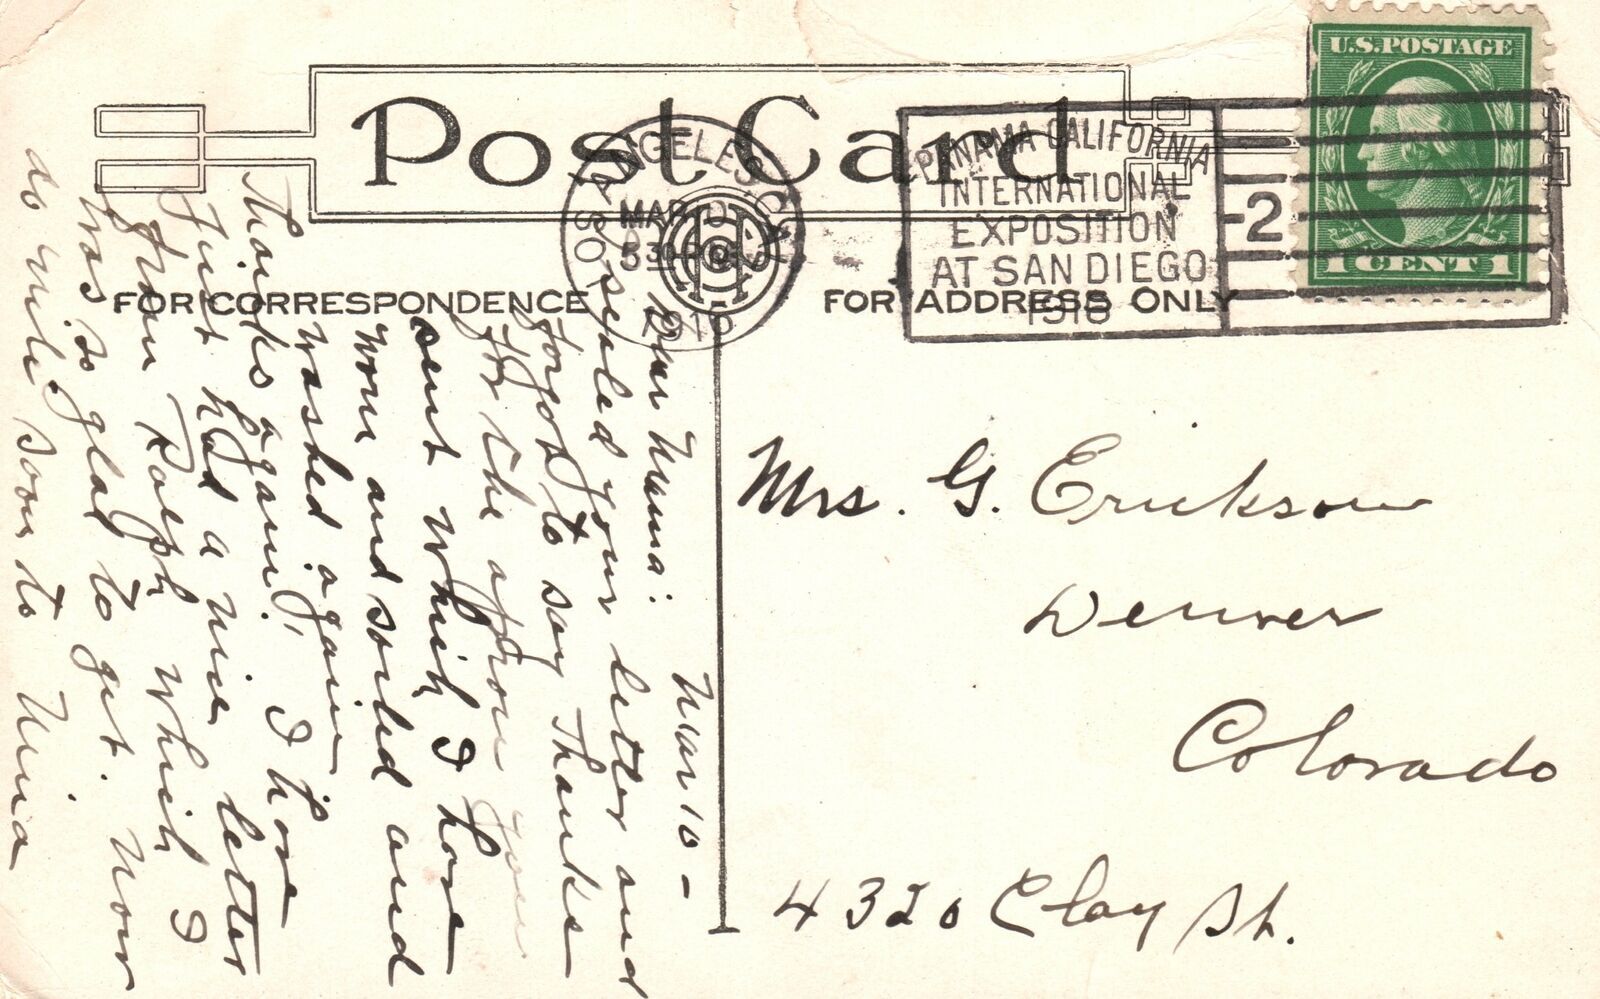 Post Card
FOR CORRESPONDENCE
FOR ADDRESS ONLY
U.S. POSTAGE
1 CENT 1
LOS ANGELES, CAL.
MAR
530 PM
1916
PANAMA CALIFORNIA
INTERNATIONAL
EXPOSITION
AT SAN DIEGO
1916
2
Mar 10 -
Dear Mama:
I sealed your letter and
forgot to say Thanks
for the apron you
sent which I have
worn and soiled and
washed again
Thanks again. I have
Just had a nice letter
from Ralph which I
was so glad to get. Now
do write soon to
Mrs. G. Erickson
Denver
Colorado
4320 Clay St.